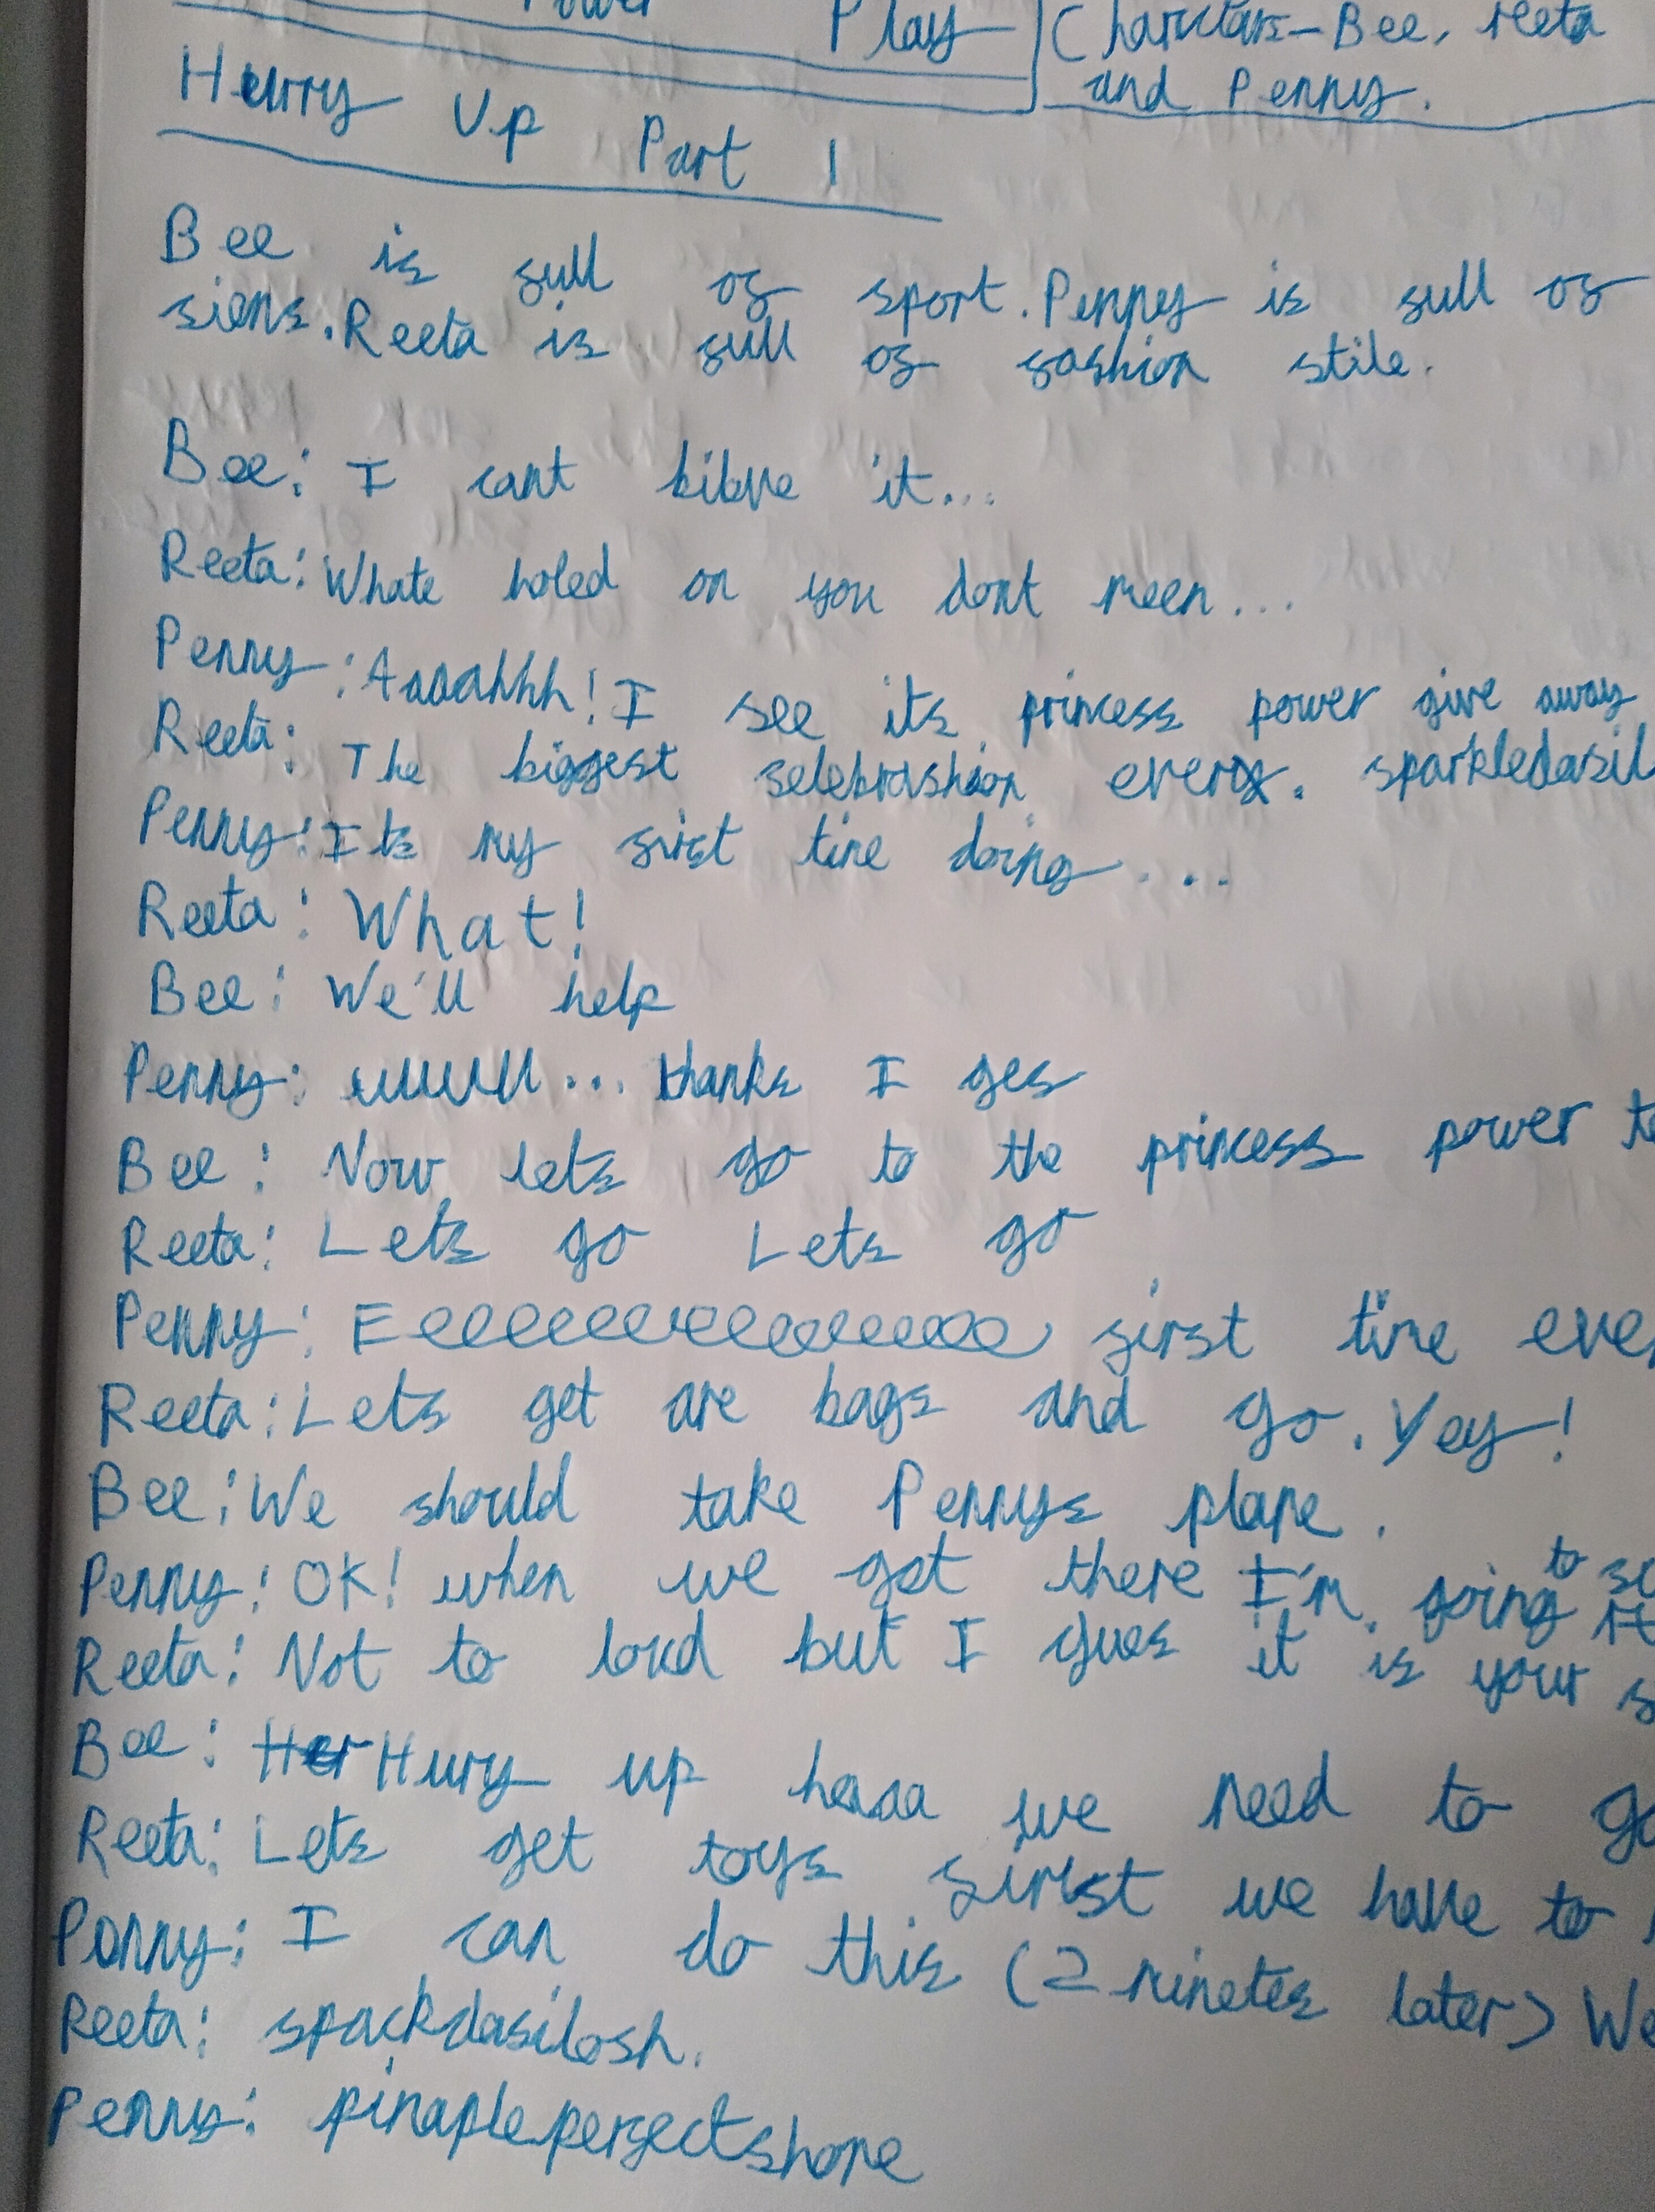 Power Play
Charictars - Bee, Reeta
and Penny.
Hurry Up Part 1
Bee is full of sport. Penny is full of
siens. Reeta is full of fashion stile.
Bee: I cant bilive it...
Reeta: Whate holed on you dont meen...
Penny: Aaaahhh! I see its princess power give away
Reeta: The biggest selebrashion ever. sparkledasil
Penny: Its my first time doing....
Reeta: What!
Bee: We'll help
Penny: uuuuu... thanks I ges
Bee: Now lets go to the princess power to
Reeta: Lets go Lets go
Penny: Eeeeeeeeeeeeeeeee first time ever
Reeta: Lets get are bags and go. Yey!
Bee: We should take Pennys plane.
Penny: OK! when we got there I'm going to sc
Reeta: Not to loud but I gues it is your
Bee: Hury up we need to go
Reeta: Lets get toys first we have to
Penny: I can do this (2 minetes later) We
Reeta: spackdasilosh.
Penny: pinapleperfectshone